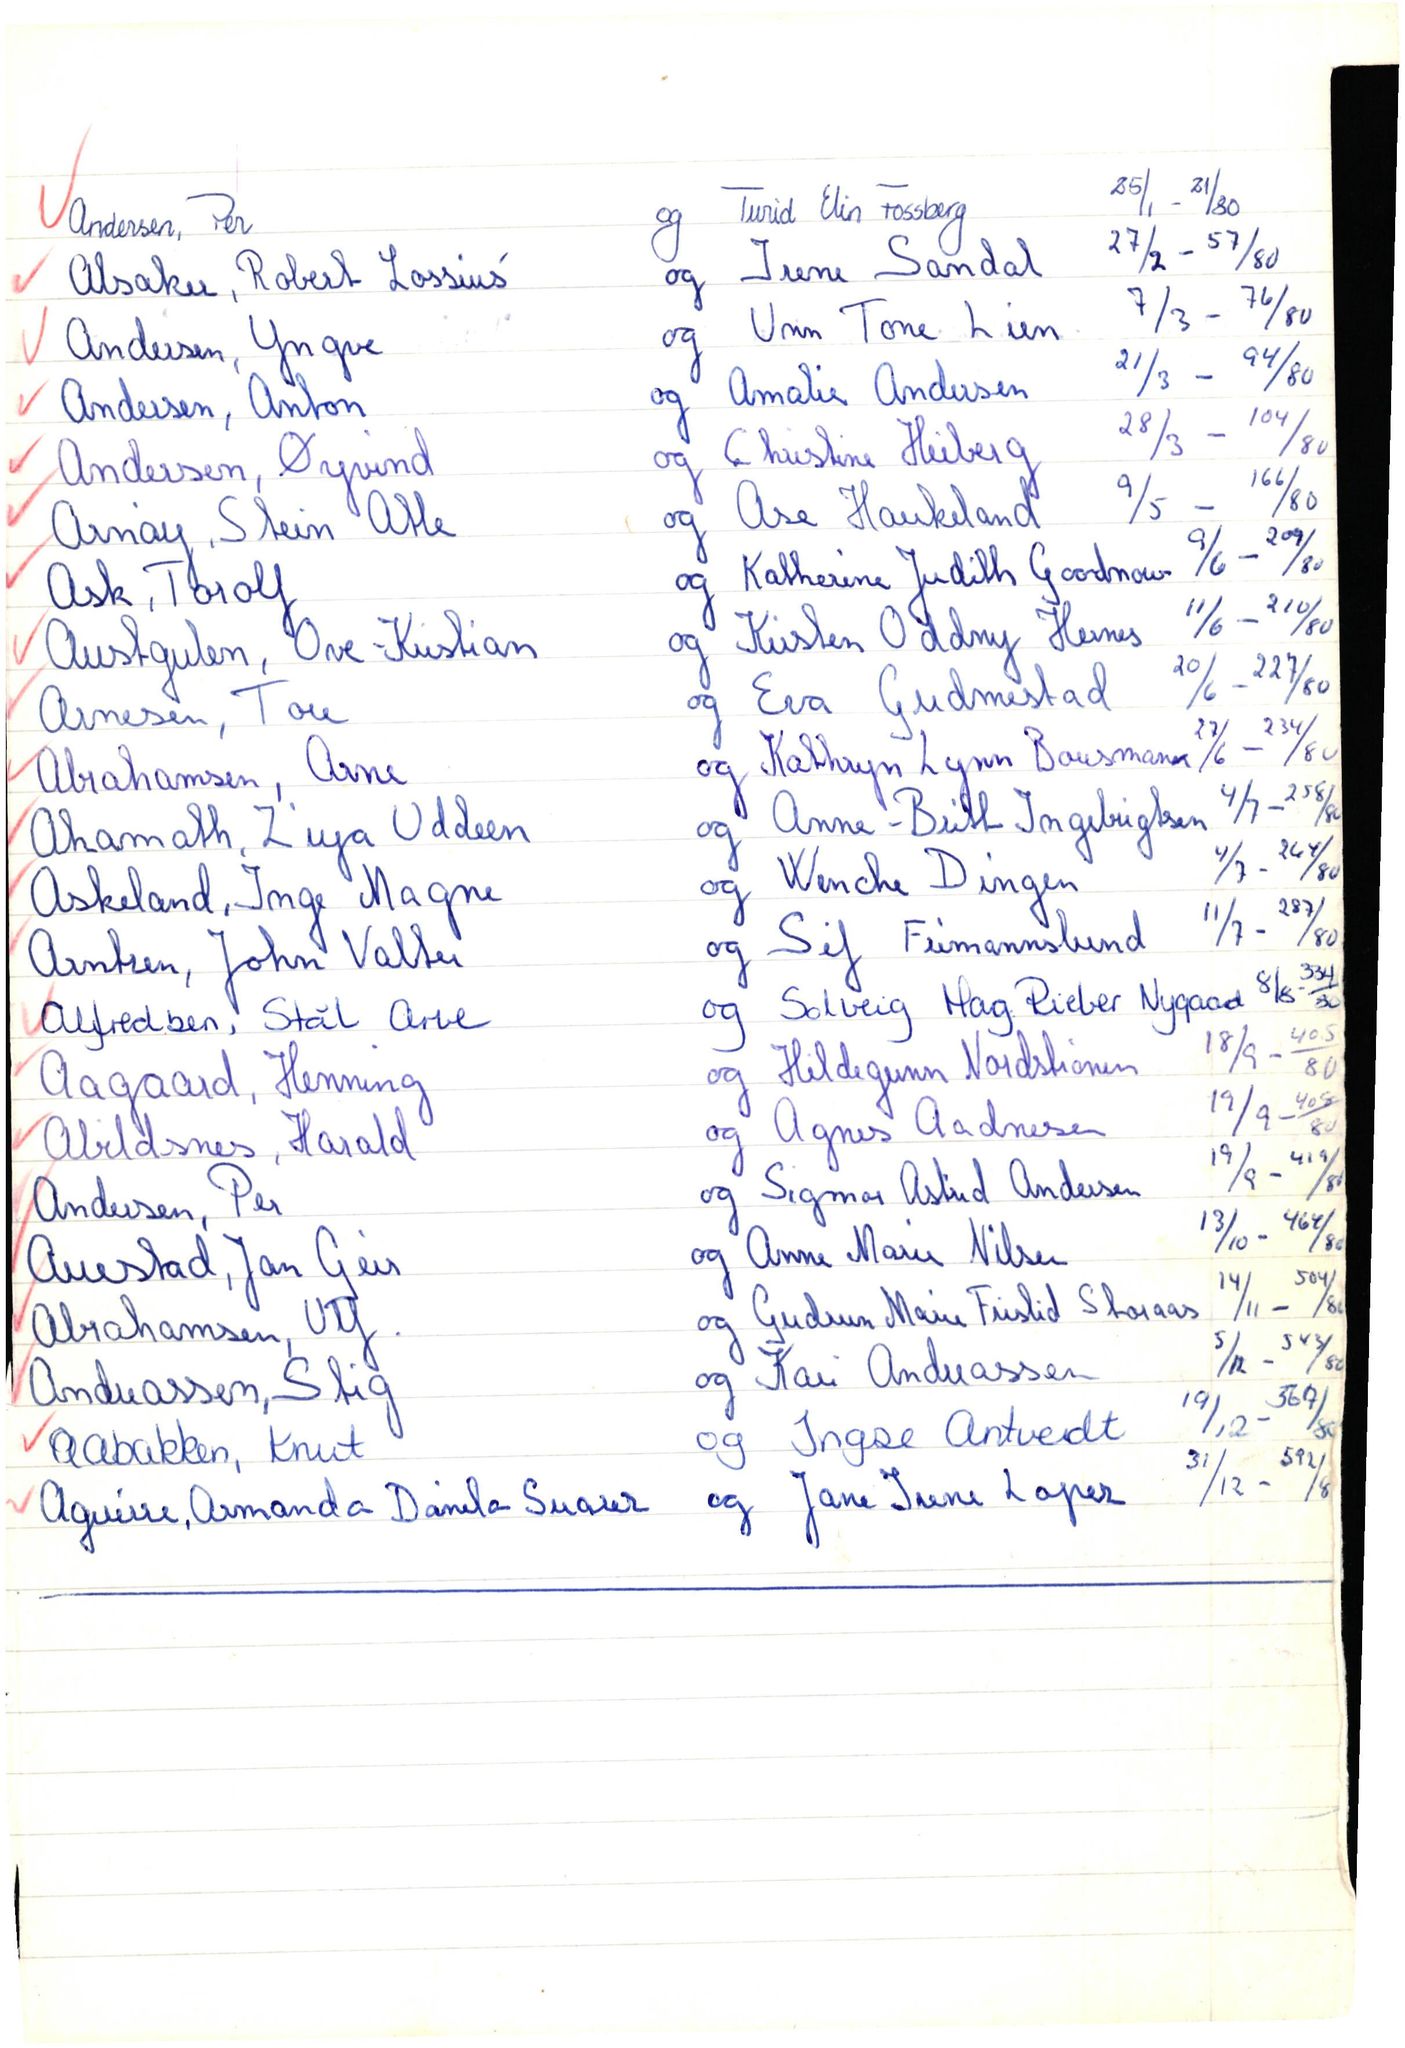 Andersen, Per og Turid Elin Fossberg 25/1 - 21/80
Alsaker, Robert Lossius og Irene Sandal 27/2 - 57/80
Andersen, Yngve og Unn Tone Lien 7/3 - 76/80
Andersen, Anton og Amalie Andersen 21/3 - 94/80
Andersen, Øyvind og Christine Heiberg 28/3 - 104/80
Arnøy, Stein Atle og Åse Haukeland 9/5 - 166/80
Ask, Torolf og Katherine Judith Goodnow 9/6 - 209/80
Austgulen, Ove-Kristian og Kirsten Oddny Hernes 11/6 - 210/80
Arnesen, Tore og Eva Gudmestad 20/6 - 227/80
Abrahamsen, Arne og Kathryn Lynn 27/6 - 234/80
Ahamath, Ziya Uddeen og Anne-Britt Ingebrigtsen 4/7 - 258/80
Askeland, Inge Magne og Wenche Dingen 4/7 - 264/80
Arntzen, John Valter og Sif Freimannslund 11/7 - 287/80
Alfredsen, Stål Arve og Solveig Mag. Rieber Nygaard 8/8 - 334/80
Aagaard, Henning og Hildegunn Nordstrønen 18/9 - 405/80
Abildsnes, Harald og Agnes Aadnesen 19/9 - 408/80
Andersen, Per og Sigmor Astrid Andersen 19/9 - 419/80
Auestad, Jan Geir og Anne Marie Nilsen 13/10 - 464/80
Abrahamsen, Ulf. og Gudrun Marie Fristid Storaas 14/11 - 504/80
Andreassen, Stig og Kari Andreassen 5/12 - 543/80
Aabakken, Knut og Ingse Antvedt 19/12 - 567/80
Aguirre, Armanda Danila Suarez og Jane Irene Lopez 31/12 - 592/8